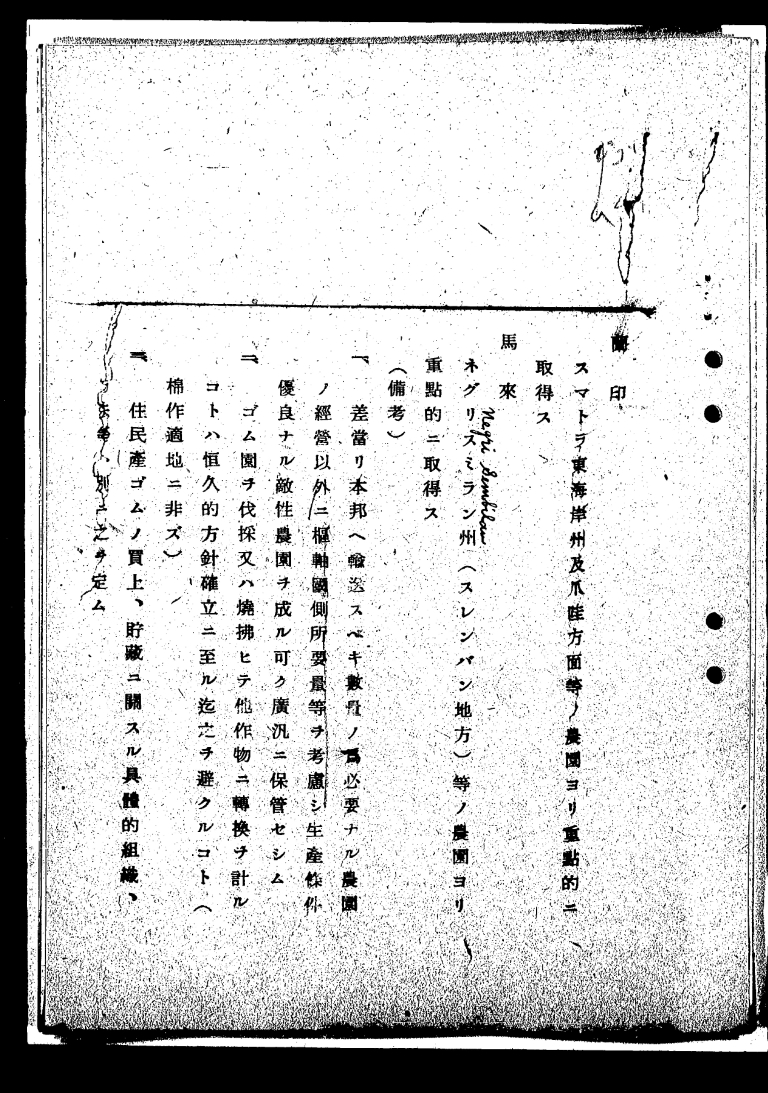 蘭印
スマトラ東海岸州及爪哇方面等ノ農園ヨリ重點的ニ
取得ス
馬來
Negri Sembilan
ネグリスミラン州（スレンバン地方）等ノ農園ヨリ
重點的ニ取得ス
（備考）
一、差當リ本邦ヘ輸送スベキ數量ノ爲必要ナル農園
ノ經營以外ニ樞軸國側所要量等ヲ考慮シ生產條件
優良ナル敵性農園ヲ成ル可ク廣汎ニ保管セシム
二、ゴム園ヲ伐採又ハ燒拂ヒテ他作物ニ轉換ヲ計ル
コトハ恒久的方針確立ニ至ル迄之ヲ避クルコト（
棉作適地ニ非ズ）
三、住民產ゴムノ買上、貯藏ニ關スル具體的組織、
方法等ハ別ニ之ヲ定ム